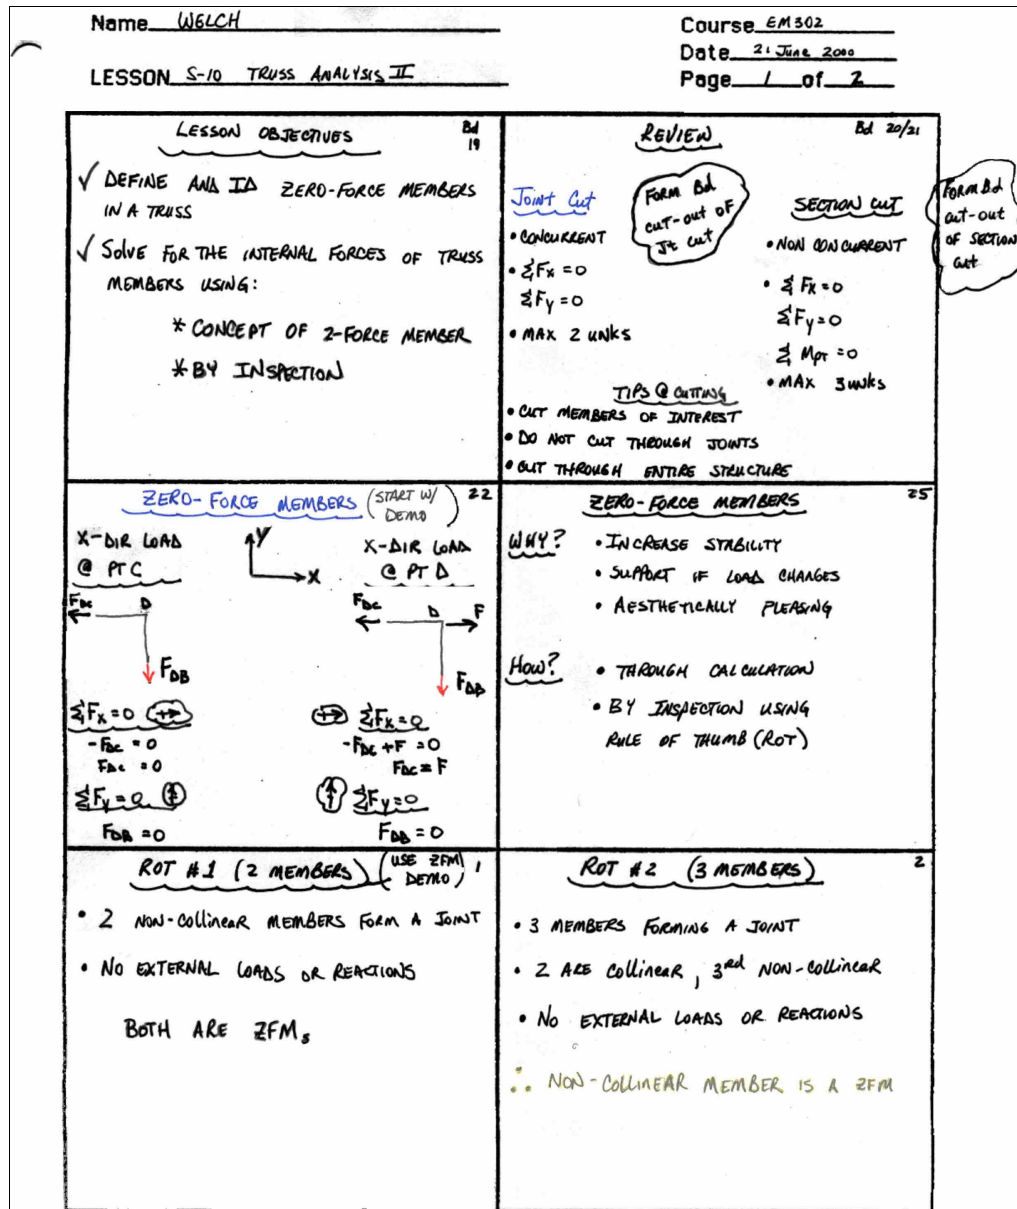 Name WELCH
Course EM302
Date 21 June 2000
LESSON S-10 TRUSS ANALYSIS II
Page 1 of 2
LESSON OBJECTIVES
Bd 19
✓ DEFINE AND ID ZERO-FORCE MEMBERS
IN A TRUSS
✓ SOLVE FOR THE INTERNAL FORCES OF TRUSS
MEMBERS USING:
* CONCEPT OF 2-FORCE MEMBER
* BY INSPECTION
REVIEW
Bd 20/21
JOINT CUT
FORM Bd
CUT-OUT OF
Jt CUT
• CONCURRENT
• ΣFx = 0
ΣFy = 0
• MAX 2 UNKS
SECTION CUT
FORM Bd
cut-out
OF SECTION
cut
• NON CONCURRENT
• ΣFx = 0
ΣFy = 0
ΣMPT = 0
• MAX 3 UNKS
TIPS @ CUTTING
• CUT MEMBERS OF INTEREST
• DO NOT CUT THROUGH JOINTS
• CUT THROUGH ENTIRE STRUCTURE
ZERO-FORCE MEMBERS (START W/ DEMO)
22
X-DIR LOAD
@ PT C
Y
X
FDC
D
FDB
ΣFx = 0
-FDC = 0
FDC = 0
ΣFy = 0
FDB = 0
X-DIR LOAD
@ PT D
FDC
D
F
FDB
ΣFx = 0
-FDC + F = 0
FDC = F
ΣFy = 0
FDB = 0
ZERO-FORCE MEMBERS
25
WHY?
• INCREASE STABILITY
• SUPPORT IF LOAD CHANGES
• AESTHETICALLY PLEASING
HOW?
• THROUGH CALCULATION
• BY INSPECTION USING
RULE OF THUMB (ROT)
ROT #1 (2 MEMBERS) (USE ZFM DEMO)
1
• 2 NON-COLLINEAR MEMBERS FORM A JOINT
• NO EXTERNAL LOADS OR REACTIONS
BOTH ARE ZFMs
ROT #2 (3 MEMBERS)
2
• 3 MEMBERS FORMING A JOINT
• 2 ARE COLLINEAR, 3rd NON-COLLINEAR
• NO EXTERNAL LOADS OR REACTIONS
∴ NON-COLLINEAR MEMBER IS A ZFM